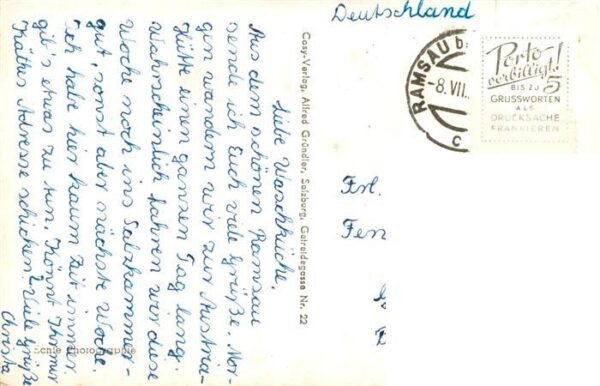 Deutschland
Liebe Waschküche,
Aus dem schönen Ramsau
sende ich Euch viele Grüße. Mor-
gen wandern wir zur Austria-
Hütte einen ganzen Tag lang.
Wahrscheinlich fahren wir diese
Woche noch ins Salzkammer-
gut, sonst aber nächste Woche.
Ich habe hier kaum Zeit immer
gib's etwas zu tun. Könnt Ihr mir
Käthes Adresse schicken? Viele Grüße
Christa
Cosy-Verlag, Alfred Gründler, Salzburg, Getreidegasse Nr. 22
Echte Photographie
RAMSAU b.
-8.VII.
c
Porto
verbilligt!
BIS ZU 5
GRUSSWORTEN
ALS
DRUCKSACHE
FRANKIEREN
Frl.
Fen